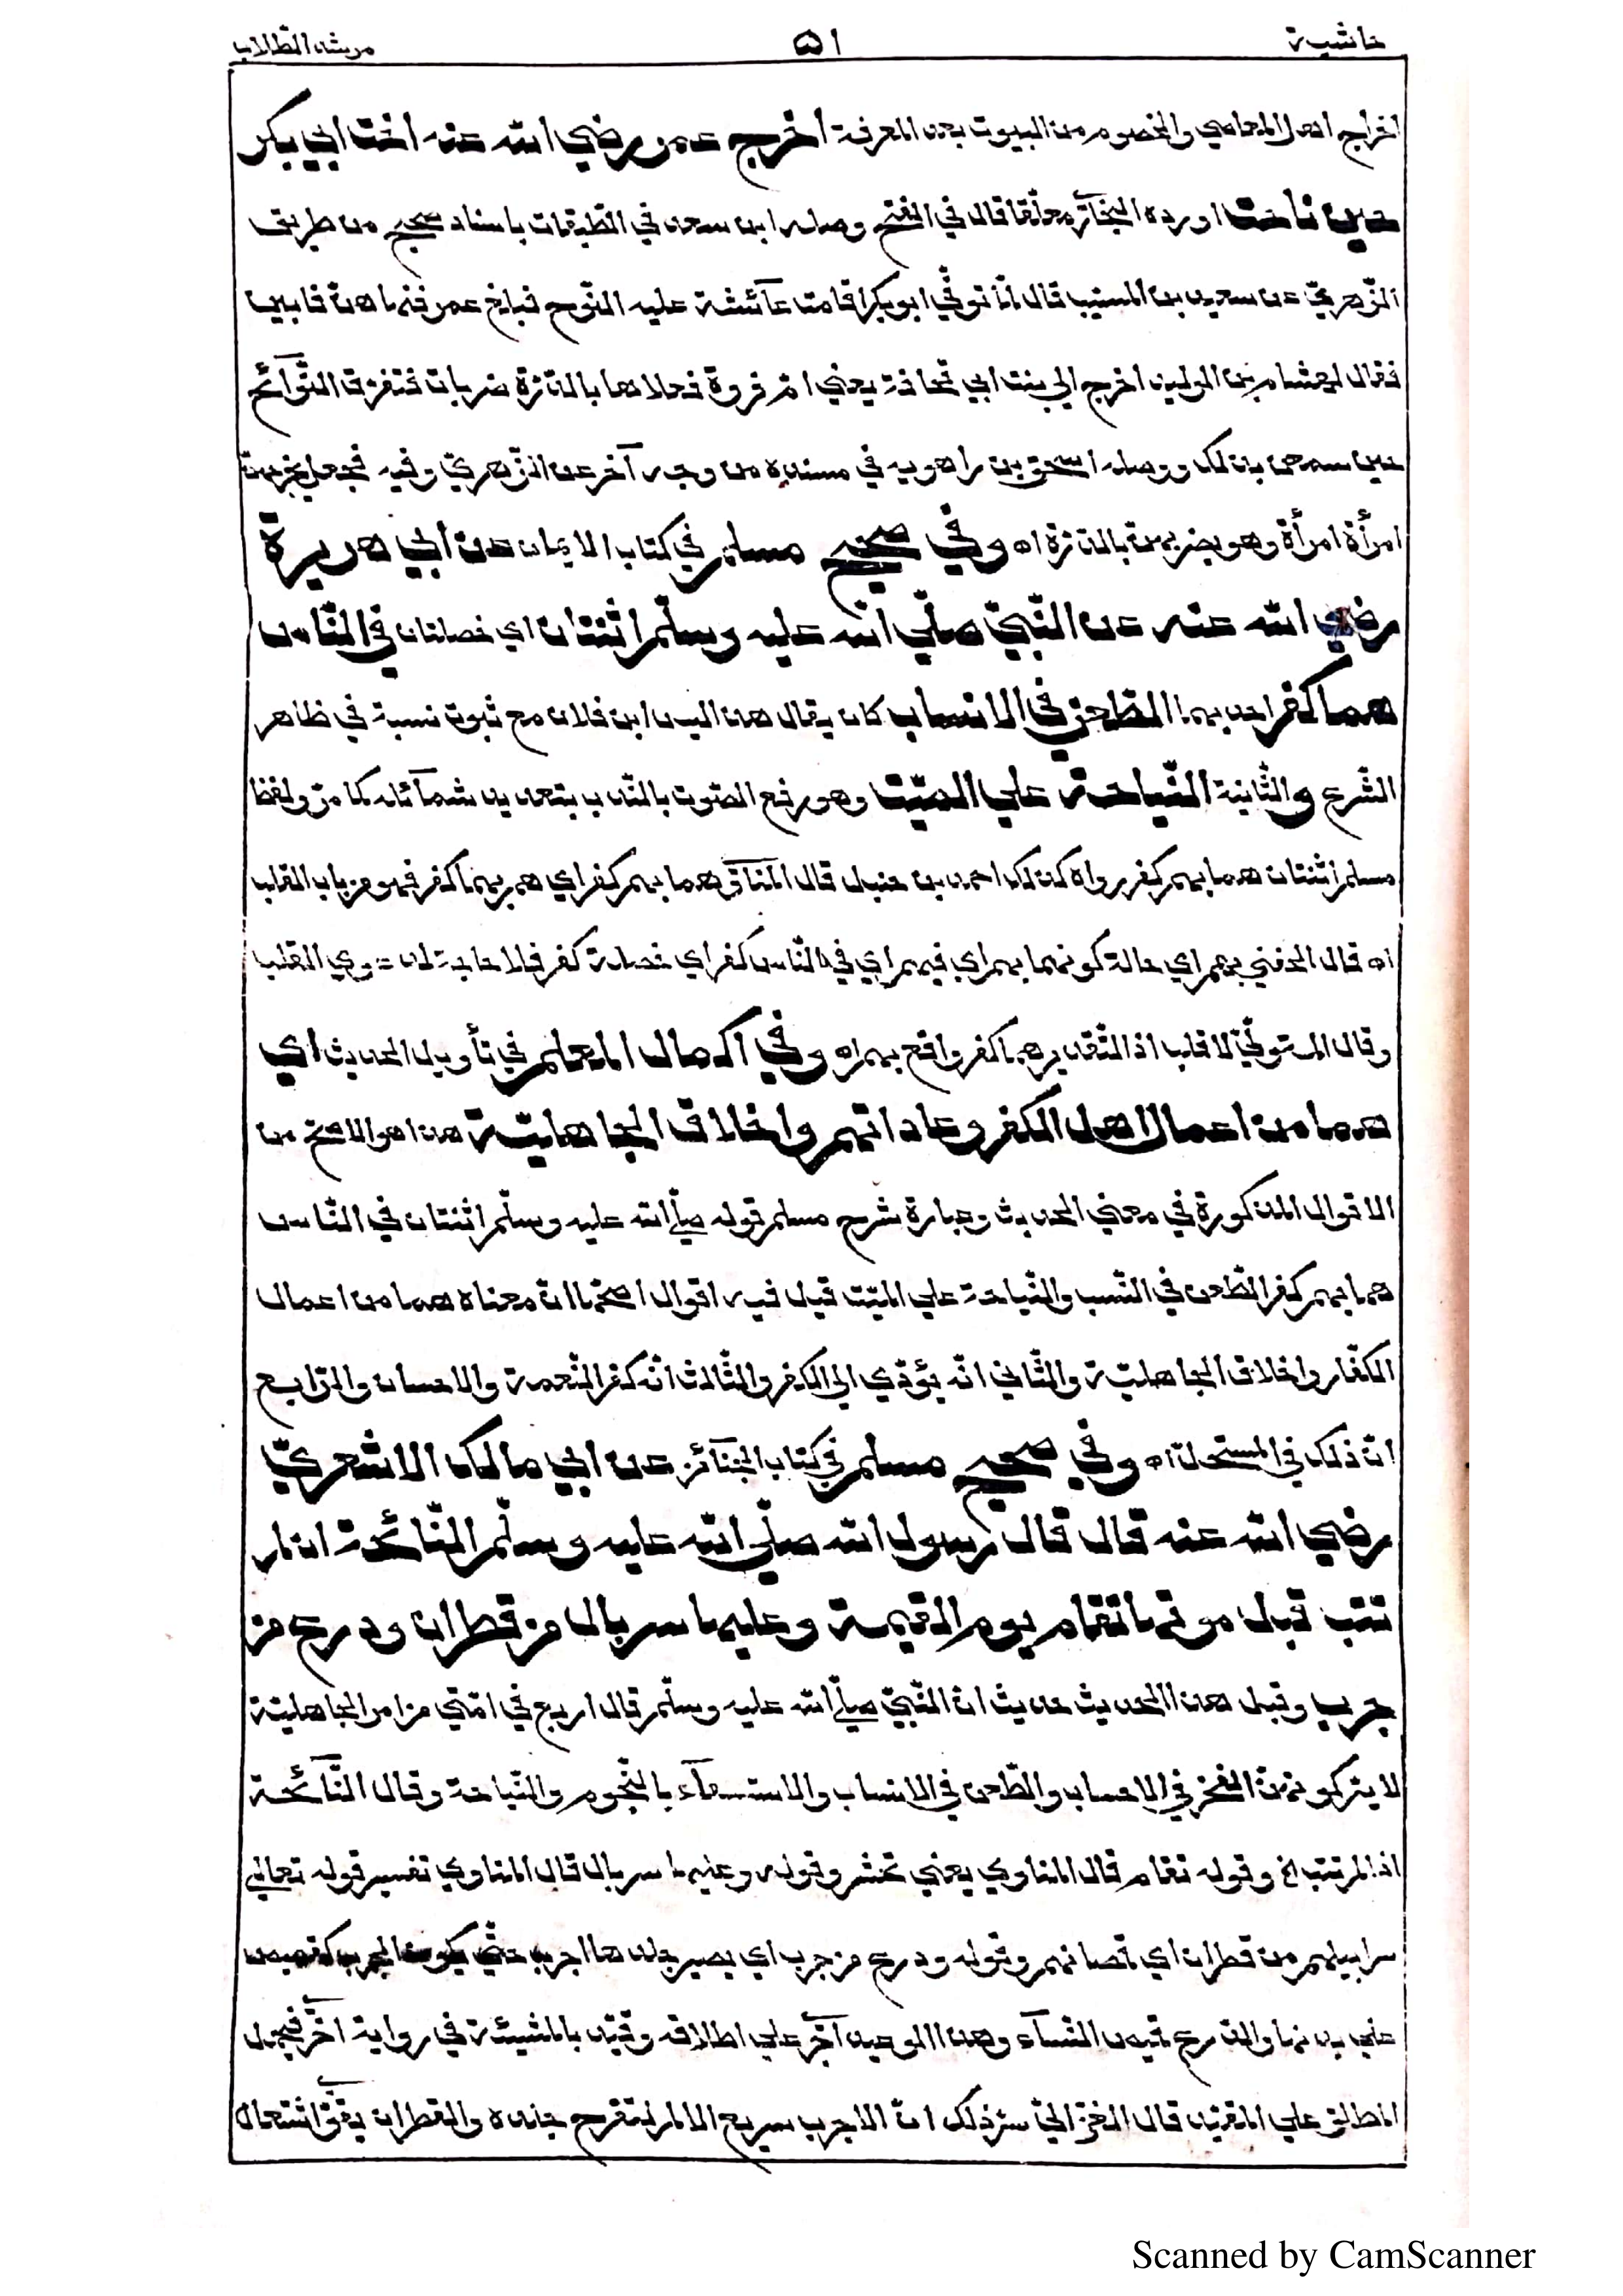 حاشية ٥١ مرشد الطلاب
اخراج اهل المعاصي والخصوم من البيوت بعد المعرفة اخرج عمر رضي الله عنه اخت ابي بكر
حين ناحت اورده البخاريّ معلّقا قال في الفتح وصله ابن سعد في الطّبقات باسناد صحيح من طريق
الزّهريّ عن سعيد بن المسيّب قال لمّا توفّي ابو بكر اقامت عآئشة عليه النّوح فبلغ عمر فنهاهنّ فابين
فقال لهشام بن الوليد اخرج الي بنت ابي قحافة يعني امّ فروة فعلاها بالدّرّة ضربات فتفرّق النّوآئح
حين سمعن بذلك ووصله اسحق بن راهويه في مسنده من وجه آخر عن الزّهريّ وفيه فجعل يخرجهنّ
امرأة امرأة وهو يضربهنّ بالدّرّة اه وفي صحيح مسلم في كتاب الايمان عن ابي هريرة
رضي الله عنه عن النّبيّ صلّي الله عليه وسلّم اثنتان اي خصلتان في النّاس
هما كفر احديهما الطّعن في الانساب كان يقال هذا ليس ابن فلان مع ثبوت نسبة في ظاهر
الشّرع والثّانية النّياحة علي الميّت وهو رفع الصّوت بالنّدب بتعديد شمآئله كما مرّ ولفظ
مسلم اثنتان هما بهم كفر رواه كذلك احمد بن حنبل قال المناويّ هما بهم كفر اي هم بهما كفر فهو من باب القلب
اه قال الحفني بهم اي حالة كونهما بهم اي فيهم اي في النّاس كفر اي خصلة كفر فلا حاجة لدعوي القلب
وقال المتولّيّ لا قلب اذ التّقدير هما كفر واقع بهم اه وفي اكمال المعلم في تأويل الحديث اي
هما من اعمال اهل الكفر وعاداتهم واخلاق الجاهليّة هذا هو الاصحّ من
الاقوال المذكورة في معني الحديث وعبارة شرح مسلم قوله صلّي الله عليه وسلّم اثنتان في النّاس
هما بهم كفر الطّعن في النّسب والنّياحة علي الميّت قيل فيه اقوال اصحّها انّ معناه هما من اعمال
الكفّار واخلاق الجاهليّة والثّاني انّه يؤدّي الي الكفر والثّالث انّه كفر النّعمة والاحسان والرّابع
انّ ذلك في المستحلّ اه وفي صحيح مسلم في كتاب الجنآئز عن ابي مالك الاشعريّ
رضي الله عنه قال قال رسول الله صلّي الله عليه وسلّم النّآئحة اذا لم
تتب قبل موتها تقام يوم القيمة وعليها سربال من قطران ودرع من
جرب وقبل هذا الحديث حديث انّ النّبيّ صلّي الله عليه وسلّم قال اربع في امّتي من امر الجاهليّة
لا يتركونهنّ الفخر في الاحساب والطّعن في الانساب والاستسقآء بالنّجوم والنّياحة وقال النّآئحة
اذا لم تتب الخ وقوله تقام قال المناوي يعني تحشر وقوله وعليها سربال قال المناوي تفسير قوله تعالي
سرابيلهم من قطران اي قمصانهم وقوله ودرع من جرب اي يصير جلدها اجرب حتّي يكون الجرب كقميص
علي بدنها والدّرع قميص النّسآء وهذا الوعيد اجري علي اطلاقه وقيّد بالمشيئة في رواية اخري فيحمل
المطلق علي المقيّد قال الغزاليّ سرّ ذلك انّ الاجرب سريع الالم لتقرّح جلده والقطران يقوّي اشتعال
Scanned by CamScanner